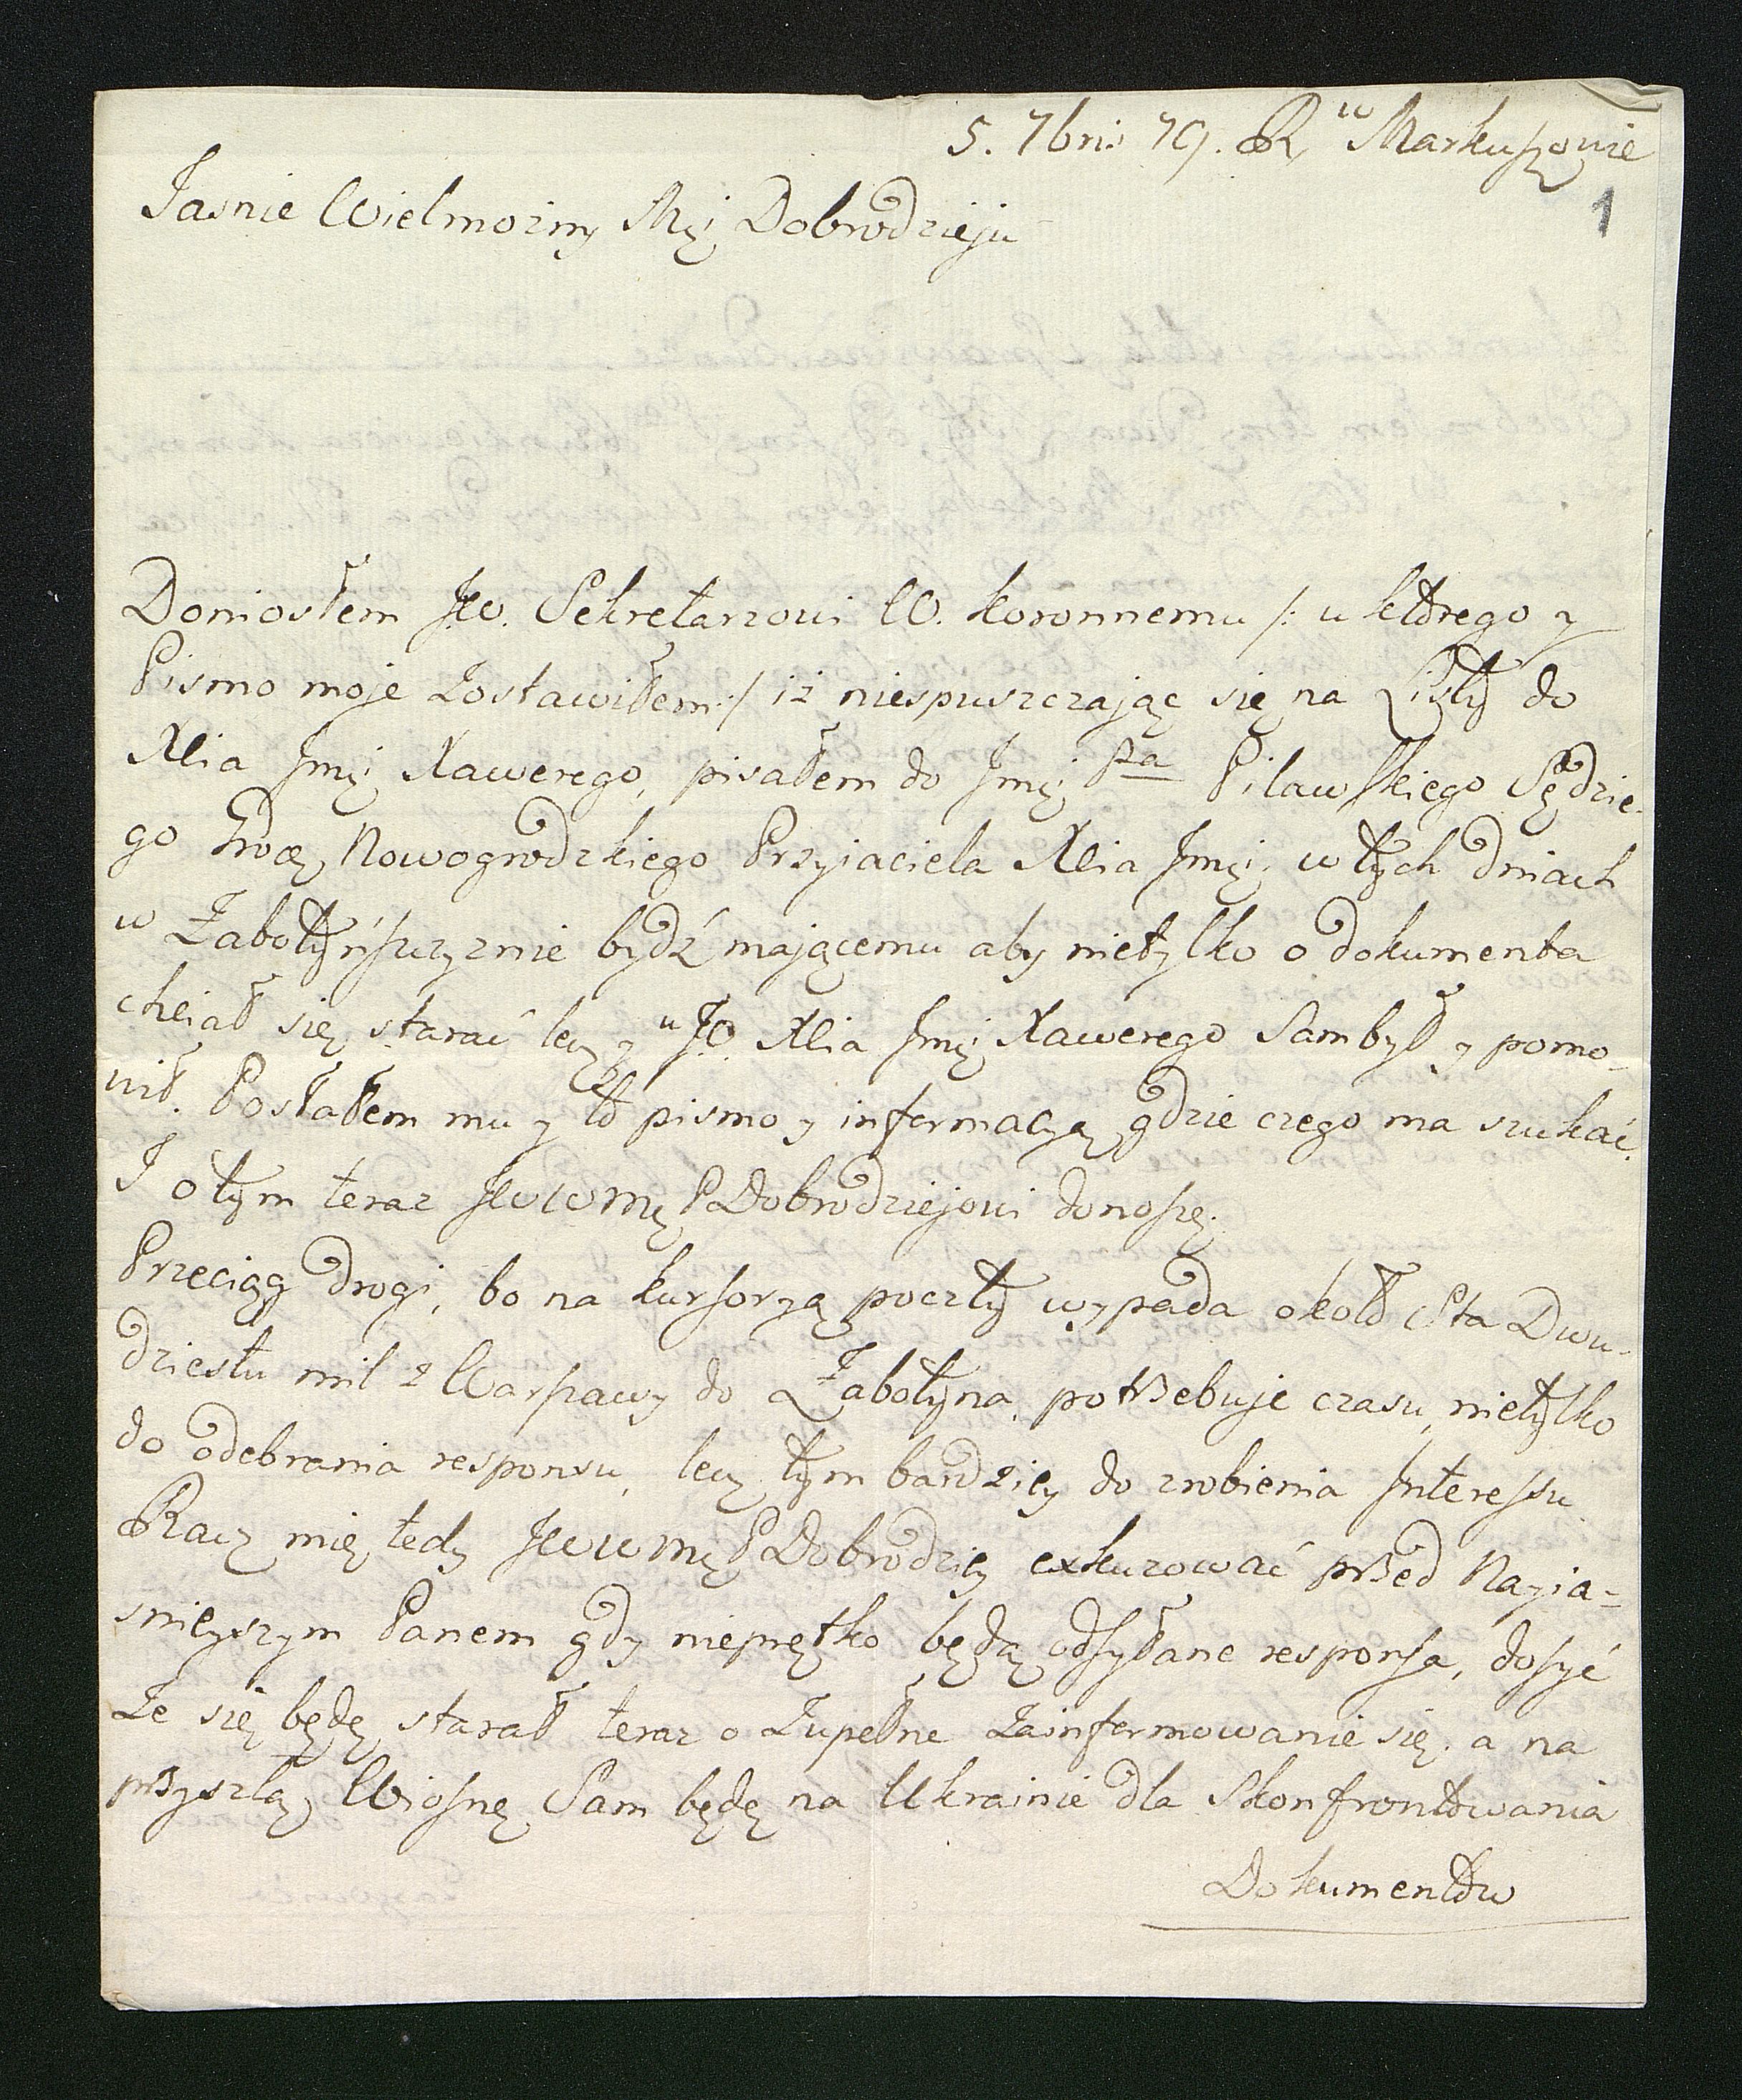 5. 7bris 79. R w Markuszowie
1
Jasnie Wielmożny Mcj Dobrodzieju
Doniosłem JW. Sekretarzowi W. koronnemu /: u ktorego y
Pismo moje zostawiłem :/ iż niespuszczając się na Listy do
Xcia Jmci Xawerego, pisałem do Jmci Pa Pilawskiego Sędzie-
go Nowogrodzkiego Przyjaciela Xcia Jmci, w tych dniach
w Żabotyńszczyznie bydź mającemu aby nietylko o dokumenta
chciał się starać lecz y u JO. Xcia Jmci Xawerego Sam był y pomo-
wił. Posłałem mu y to pismo y informacyą gdzie czego ma szukać.
I o tym teraz JWWMci PDobrodziejowi donoszę.
Przeciąg drogi, bo na kursorzą pocztę wypada około Sta Dwu-
dziestu mil z Warszawy do Żabotyna, potrzebuje czasu nietylko
do odebrania responsu, lecz tym bardziey do zrobienia Interessu.
Racz mię tedy JWWMci PDobrodziey exkuzować przed Nayia-
snieyszym Panem gdy nieprętko będą odsyłane responsa, dosyć
że się będę starał teraz o zupełne zainformowanie się, a na
przyszłą Wiosnę Sam będę na Ukrainie dla skonfrontowania
Dokumentow